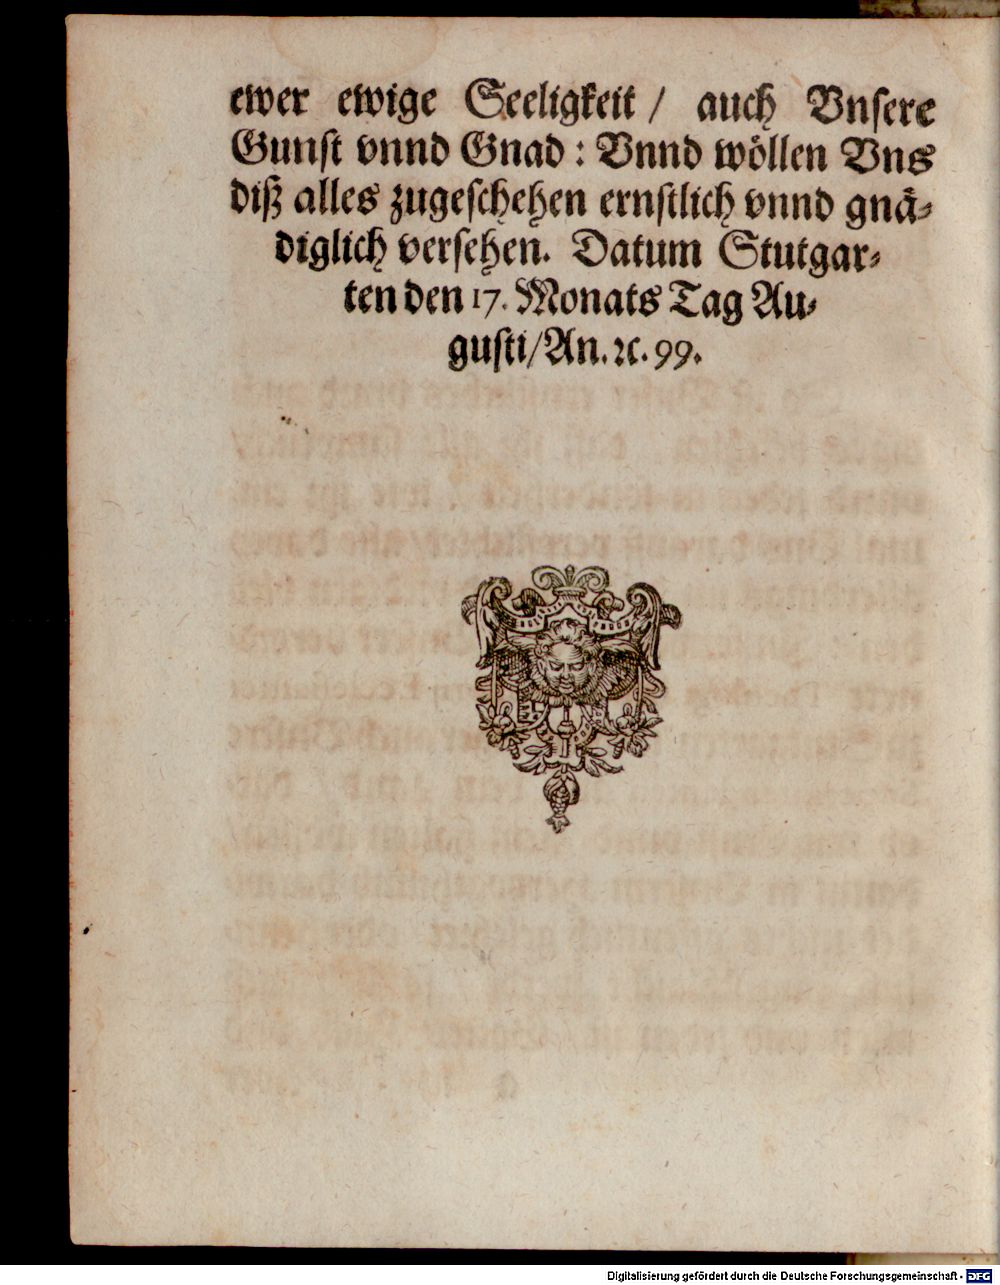 ewer ewige Seeligkeit / auch Vnsere
Gunst vnnd Gnad : Vnnd wöllen Vns
diß alles zugeschehen ernstlich vnnd gnä⸗
diglich versehen. Datum Stutgar⸗
ten den 17. Monats Tag Au⸗
gusti/ An. ꝛc. 99.
Digitalisierung gefördert durch die Deutsche Forschungsgemeinschaft - DFG